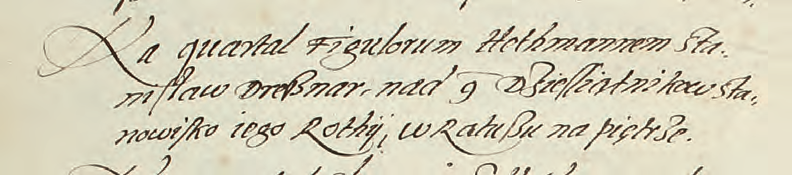 Na quartal Figulorum Hethmannem Sta-
nisław Dreßnar, nad 9 Dziesiątnikow Sta,
nowisko iego Rothÿ, w Ratußu na piętrze.